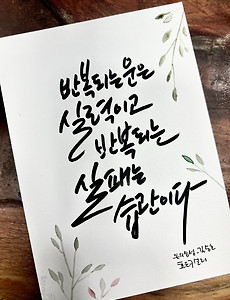 반복되는 운은
실력이고
반복되는
실패는
습관이다